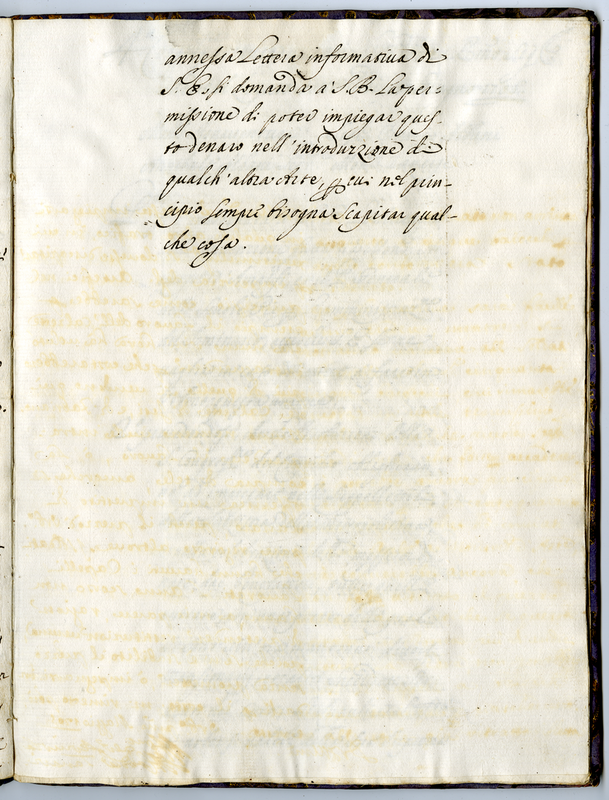 annessa Lettera informativa di
S. E. si domanda a S. B. La per=
missione di poter impiegar ques-
to denaro nell' introduzione di
qualch' altra Arte, in cui nel prin-
cipio sempre bisogna scapitar qual-
che cosa.